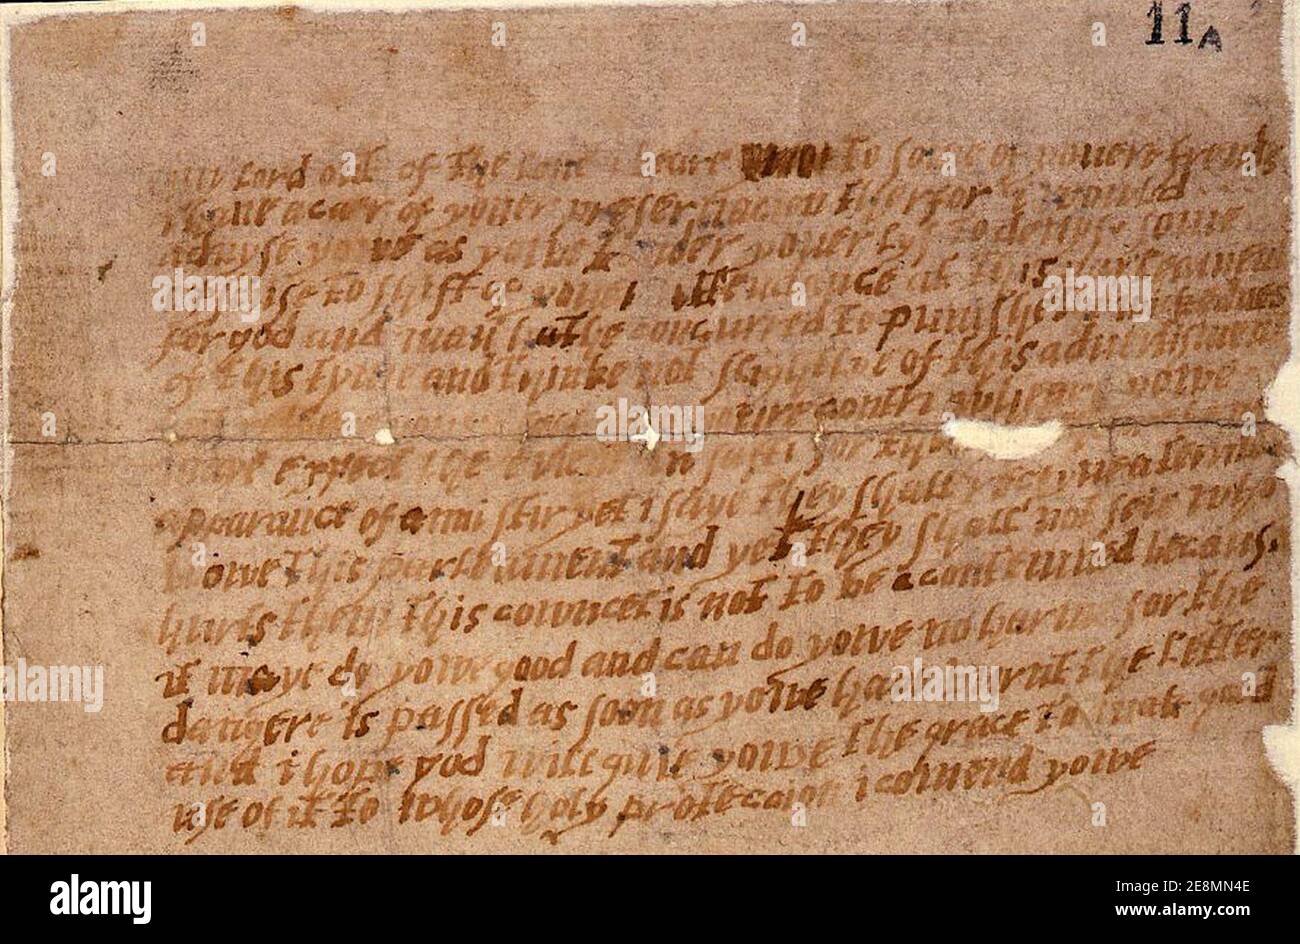 11A
my lord out of the love i beare to some of youere frends
i have a caer of youer preseruacion therfor i would
aduyse yowe as yowe tender youer lyf to deuyse some
excuse to shift of youer attendance at this parleament
for god and man hathe concurred to punishe the wickednes
of this tyme and thinke not slightlye of this aduertisment
contri yowe
maye expect the euent in safti for
apearance of anni stir yet i saye they shall receyue a terrible
blowe this parleament and yet they shall not seie who
hurts them this cowncel is not to be acontemned because
it maye do yowe good and can do yowe no harme for the
dangere is passed as soon as yowe have burnt the letter
and i hope god will give yowe the grace to mak good
use of it to whose holy proteccion i comend yowe
a
alamy
Image ID: 2E8MN4E
www.alamy.com